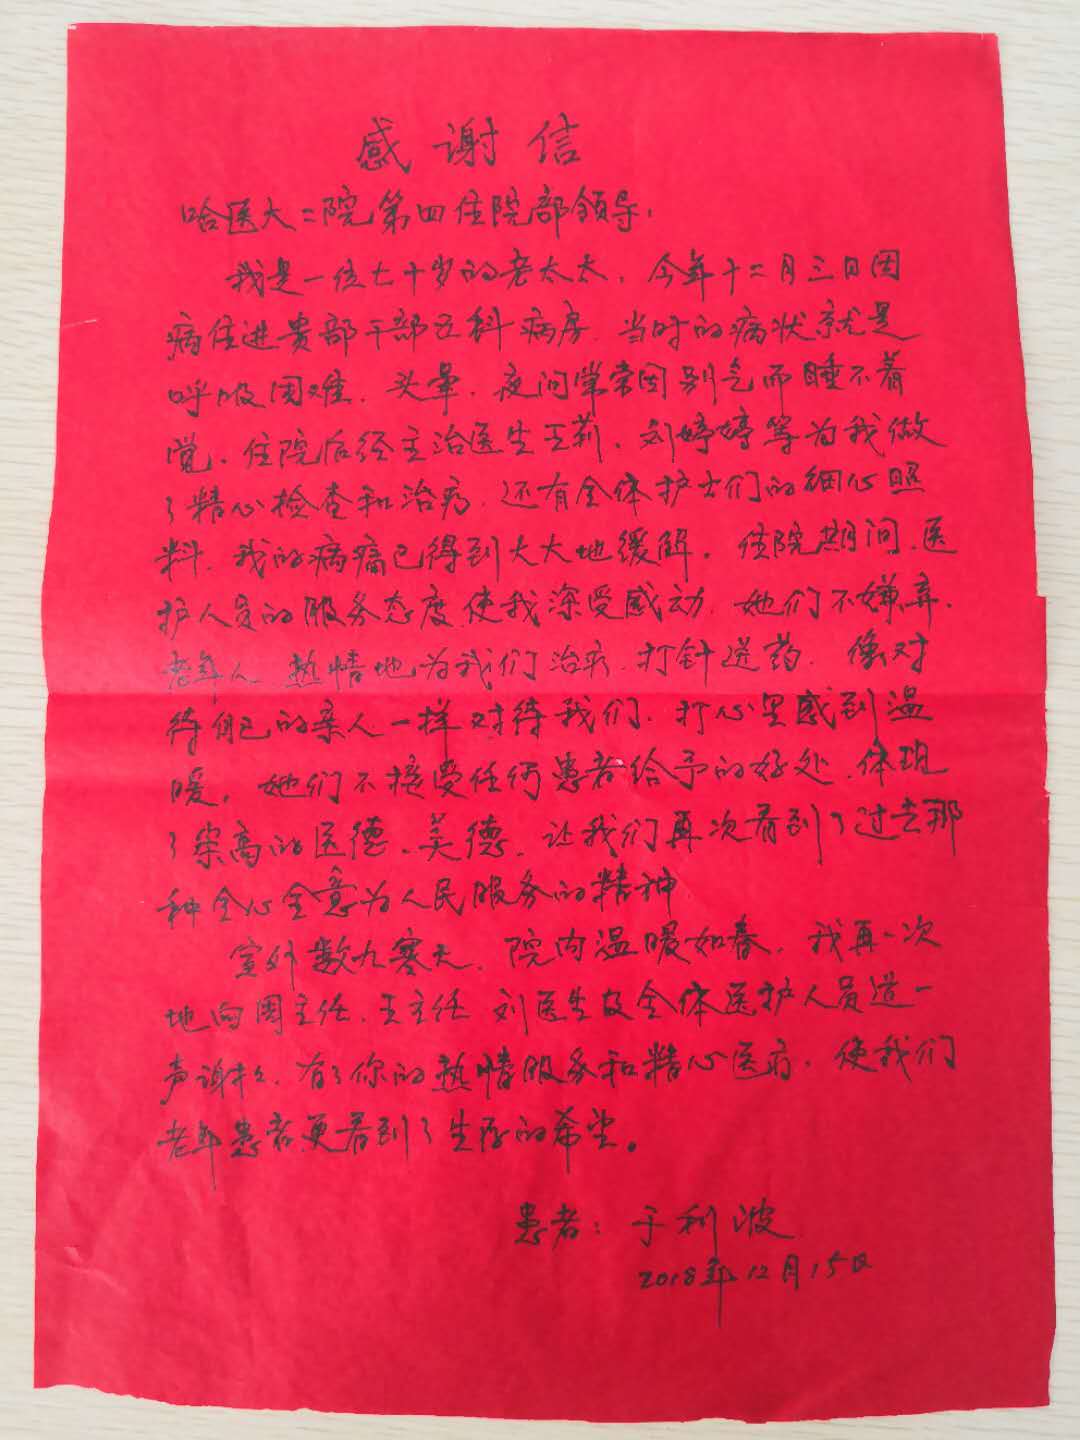 感谢信
哈医大二院第四住院部领导:
我是一位七十岁的老太太,今年十二月三日因
病住进贵部干部五科病房,当时的病状就是
呼吸困难、头晕,夜间常常因别气而睡不着
觉。住院后经主治医生王莉、刘婷婷等为我做
了精心检查和治疗,还有全体护士们的细心照
料,我的病痛已得到大大地缓解。住院期间,医
护人员的服务态度使我深受感动,她们不嫌弃
老年人,热情地为我们治疗、打针送药,像对
待自己的亲人一样对待我们,打心里感到温
暖。她们不接受任何患者给予的好处,体现
了崇高的医德、美德,让我们再次看到了过去那
种全心全意为人民服务的精神
室外数九寒天,院内温暖如春,我再一次
地向周主任、王主任 刘医生及全体医护人员道一
声谢谢,有了你的热情服务和精心医疗,使我们
老年患者更看到了生存的希望。
患者:于利波
2018年12月15日